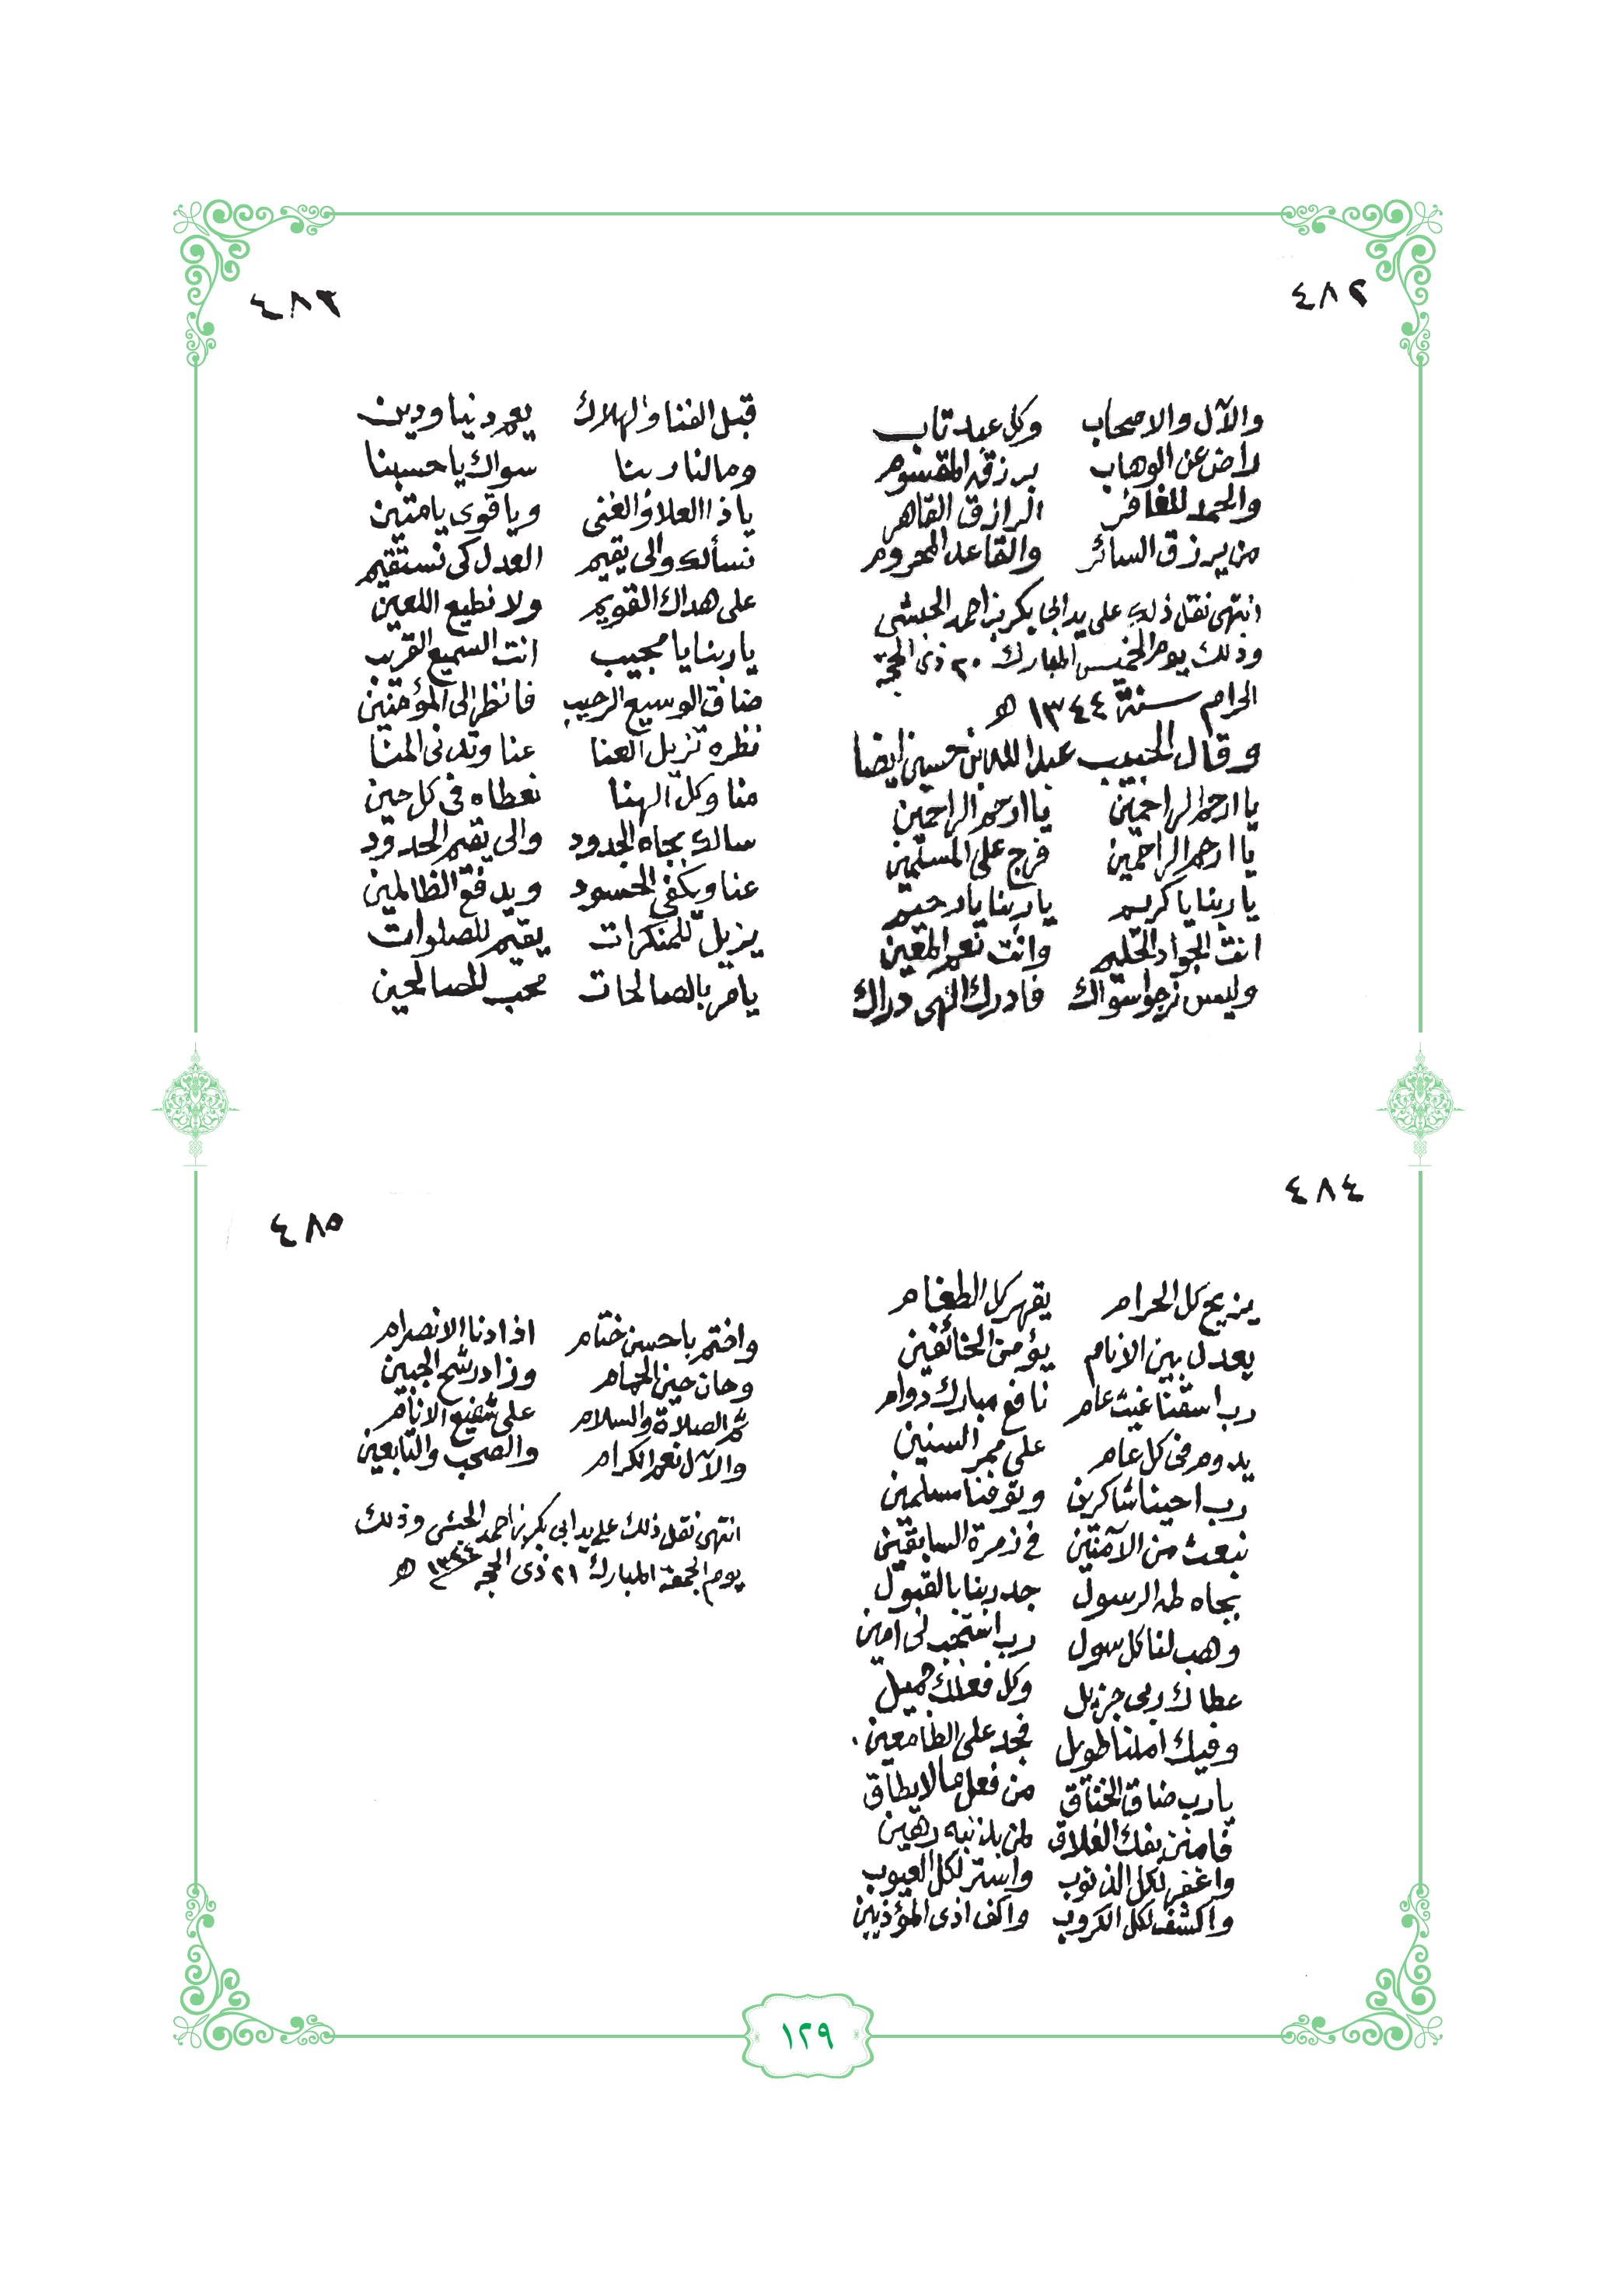 ٤٨٢
والآل والاصحاب وكل عبد تاب
راض عن الوهاب برزقه المقسوم
والحمد للغافر الرازق القاهر
من يرزق السائر والقاعد المحروم
انتهى نقل ذلك على يد ابى بكر بن احمد الحبشي
وذلك يوم الخميس المبارك ٢٠ ذى الحجة
الحرام سنة ١٣٤٤ هـ
وقال الحبيب عبد الله بن حسين ايضا
يا ارحم الراحمين يا ارحم الراحمين
يا ارحم الراحمين فرج على المسلمين
يا ربنا يا كريم يا ربنا يا رحيم
انت الجواد الحليم وانت نعم المعين
وليس نرجوا سواك فادرك الهى دراك
٤٨٣
قبل الفنا والهلاك يعم دنيا ودين
وما لنا ربنا سواك يا حسبنا
يا ذا العلا والغنى ويا قوى يا متين
نسألك والى يقيم العدل كى نستقيم
على هداك القويم ولا نطيع اللعين
يا ربنا يا مجيب انت السميع القريب
ضاق الوسيع الرحيب فانظر الى المؤمنين
نظره تزيل العنا عنا وتدنى المنا
منا وكل الهنا نعطاه فى كل حين
سالك بجاه الجدود والى يقيم الحدود
عنا ويكفي الحسود ويدفع الظالمين
يزيل للمنكرات يقيم للصلوات
يأمر بالصالحات محب للصالحين
٤٨٤
يزيح كل الحرام يقهر كل الطغام
يعدل بين الانام يؤمن الخائفين
رب اسقنا غيث عام نافع مبارك دوام
يدوم فى كل عام على ممر السنين
رب احينا شاكرين وتوفنا مسلمين
نبعث من الآمنين في زمرة السابقين
بجاه طه الرسول جد ربنا بالقبول
وهب لنا كل سول رب استجب لى امين
عطاك ربى جزيل وكل فعلك جميل
وفيك املنا طويل فجد على الطامعين
يا رب ضاق الخناق من فعل ما لا يطاق
فامنن بفك الغلاق لمن بذنبه رهين
واغفر لكل الذنوب واستر لكل العيوب
واكشف لكل الكروب واكف اذى المؤذيين
٤٨٥
واختم باحسن ختام اذا دنا الانصرام
وحان حين الحمام وزاد رشح الجبين
ثم الصلاة والسلام على شفيع الانام
والآل نعم الكرام والصحب والتابعين
انتهى نقل ذلك على يد ابى بكر بن احمد الحبشى وذلك
يوم الجمعة المبارك ٢١ ذى الحجه ١٣٤٤ هـ
١٢٩